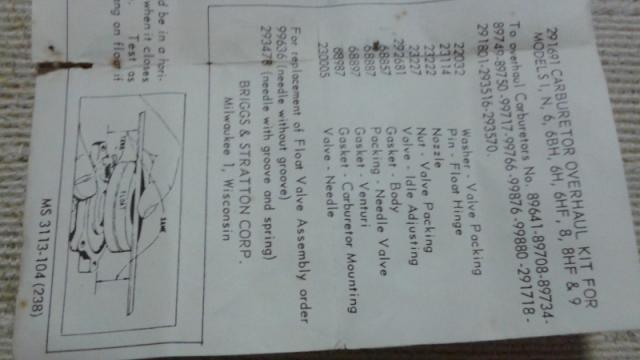 291691 CARBURETOR OVERHAUL KIT FOR
MODELS I, N, 6, 6BH, 6H, 6HF, 8, 8HF & 9
To overhaul Carburetors No. 89641-89708-89734-
89740-89750-99717-99766-99876-99880-291718-
291801-293516-293570.
22032 Washer - Valve Packing
23114 Pin - Float Hinge
23222 Nozzle
23227 Nut - Valve Packing
292681 Valve - Idle Adjusting
68857 Gasket - Body
68887 Packing - Needle Valve
68897 Gasket - Venturi
68987 Gasket - Carburetor Mounting
230005 Valve - Needle
For replacement of Float Valve Assembly order
99636 (needle without groove)
293478 (needle with groove and spring)
BRIGGS & STRATTON CORP.
Milwaukee 1, Wisconsin
d be in a hori-
when it closes
Test as
ng on float if
SAME
FLOAT
SAME
MS 3113-104 (238)